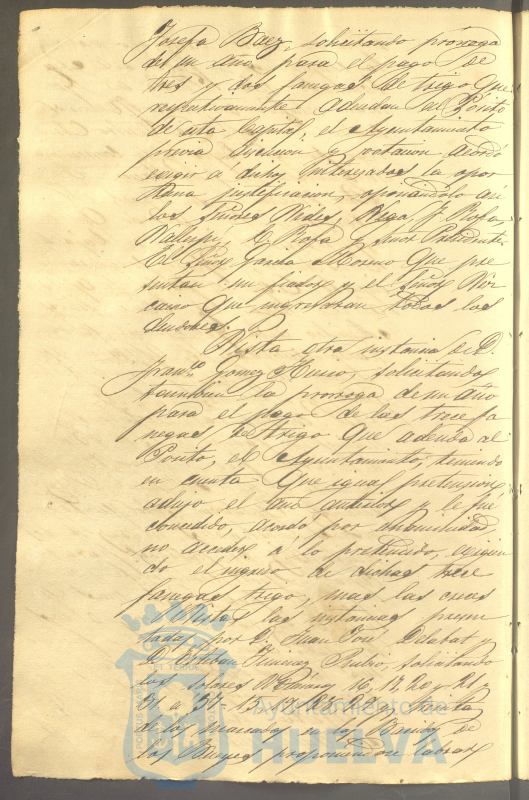 Josefa Baez, solicitando prórroga
de un año para el pago de
tres y dos fanegas de trigo que
respectivamente adeudan al Pósito
de esta Capital, el Ayuntamiento
previa discusion y votacion acordó
exigir a dichos interesados la opor
tuna justificacion, opinándolo así
los Señores
y Señor Presidente.
El Señor Garcia Moreno que pre
sentan un fiador y el Señor
que ingresaran todos los
deudores.
Vista otra instancia de D.
Franco. Gomez solicitando
tambien la prorroga de un año
para el pago de las trece fa
negas de trigo que adeuda al
Pósito, el Ayuntamiento, teniendo
en cuenta que igual pretension
adujo el año anterior y le fué
concedido, acordó por unanimidad
no acceder á lo pretendido, exigien
do el ingreso de dichas trece
fanegas trigo, mas las creces
Vista las instancias presen
tadas por D. Juan José Delabat y
D. Esteban Jimenez Rubio, solicitando
los solares números 16, 17, 20 y 21
de los marcados en los
de los
Ayuntamiento de
HUELVA